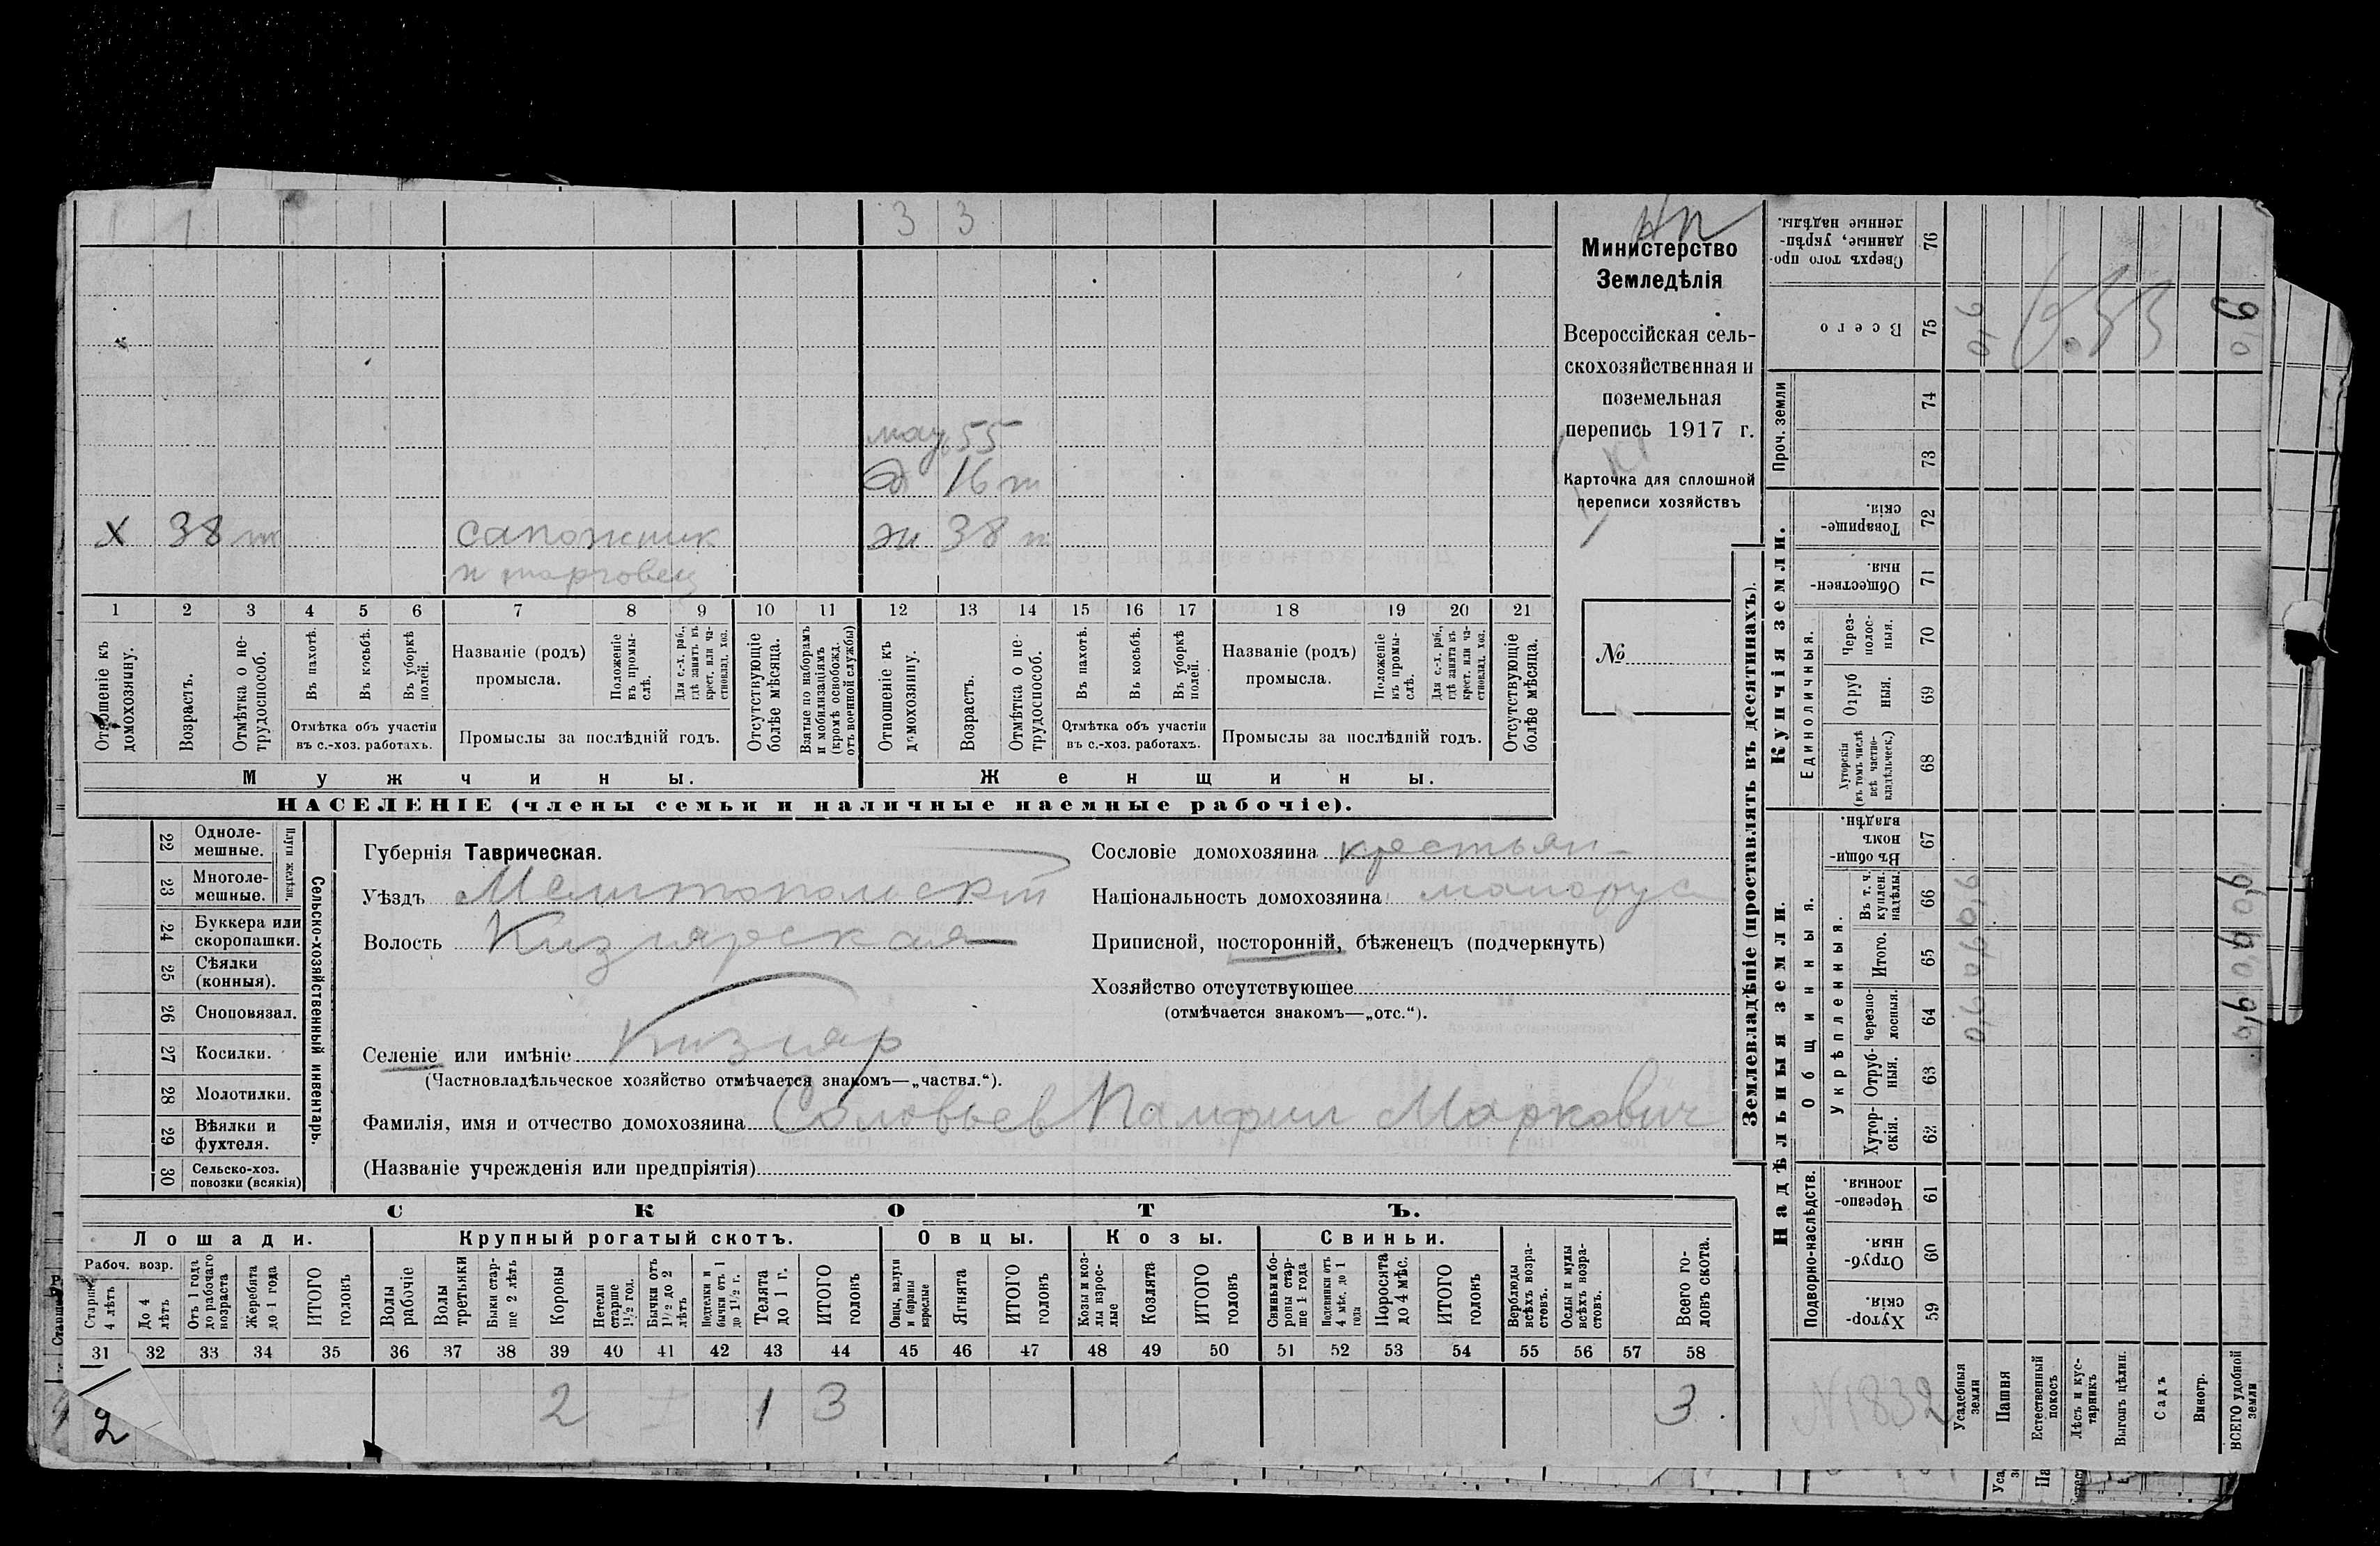 1 1 3 3
мач 55
д 16 т
х 38 т сапожник ж 38 т
и торговец
1 2 3 4 5 6 7 8 9 10 11 12 13 14 15 16 17 18 19 20 21
Отношеніе къ домохозяину.
Возрастъ.
Отмѣтка о не-трудоспособ.
Въ пахотѣ.
Въ косьбѣ.
Въ уборкѣ полей.
Отмѣтка объ участіи
въ с.-хоз. работахъ.
Названіе (родъ)
промысла.
Положеніе въ промы-слѣ.
Для с.-х. раб., гдѣ занятъ въ крест. или ча-стновлад. хоз.
Промыслы за послѣдній годъ.
Отсутствующіе болѣе мѣсяца.
Взятые по наборамъ и мобилизаціямъ (кромѣ освобожд. отъ военной службы)
Отношеніе къ домохозяину.
Возрастъ.
Отмѣтка о не-трудоспособ.
Въ пахотѣ.
Въ косьбѣ.
Въ уборкѣ полей.
Отмѣтка объ участіи
въ с.-хоз. работахъ.
Названіе (родъ)
промысла.
Положеніе въ промы-слѣ.
Для с.-х. раб., гдѣ занята въ крест. или ча-стновлад. хоз.
Промыслы за послѣдній годъ.
Отсутствующіе болѣе мѣсяца.
Мужчины. Женщины.
НАСЕЛЕНІЕ (члены семьи и наличные наемные рабочіе).
Министерство
Земледѣлія
Всероссійская сель-
скохозяйственная и
поземельная
перепись 1917 г.
Карточка для сплошной
переписи хозяйствъ
№
Сельско-хозяйственный инвентарь.
Плуги желѣзн.
22 Одноле-
мешные.
23 Многоле-
мешные.
24 Буккера или
скоропашки.
25 Сѣялки
(конныя).
26 Сноповязал.
27 Косилки.
28 Молотилки.
29 Вѣялки и
фухтеля.
30 Сельско-хоз.
повозки (всякія)
Губернія Таврическая.
Уѣздъ Мелитопольскій
Волость Кизиярская
Селеніе или имѣніе Кизияр
(Частновладѣльческое хозяйство отмѣчается знакомъ—„частвл.“).
Фамилія, имя и отчество домохозяина Соловьев Памфил Маркович
(Названіе учрежденія или предпріятія)
Сословіе домохозяина крестьян
Національность домохозяина малорус
Приписной, посторонній, бѣженецъ (подчеркнуть)
Хозяйство отсутствующее
(отмѣчается знакомъ—„отс.“).
СКОТЪ.
Лошади. Крупный рогатый скотъ. Овцы. Козы. Свиньи.
Рабоч. возр.
Старше 4 лѣтъ
До 4 лѣтъ
Отъ 1 года до рабочаго возраста
Жеребята до 1 года
ИТОГО головъ
Волы рабочіе
Волы третьяки
Быки стар-ше 2 лѣтъ
Коровы
Нетели старше 1½ год.
Бычки отъ 1½ до 2 лѣтъ
Подтелки и бычки отъ 1 до 1½ г.
Телята до 1 г.
ИТОГО головъ
Овцы, валухи и бараны взрослые
Ягнята
ИТОГО головъ
Козы и коз-лы взрос-лые
Козлята
ИТОГО головъ
Свиньи и бо-ровы стар-ше 1 года
Подсвинки отъ 4 мѣс. до 1 года
Поросята до 4 мѣс.
ИТОГО головъ
Верблюды всѣхъ возра-стовъ.
Ослы и мулы всѣхъ возра-стовъ.
Всего го-ловъ скота.
31 32 33 34 35 36 37 38 39 40 41 42 43 44 45 46 47 48 49 50 51 52 53 54 55 56 57 58
2 2 1 3 3
Землевладѣніе (проставлять въ десятинахъ).
Надѣльныя земли. Купчія земли. Проч. земли
Подворно-наслѣдств.
Общинныя.
Укрѣпленныя.
Единоличныя.
59 Хутор-скія.
60 Отруб-ныя.
61 Черезпо-лосныя.
62 Хутор-скія.
63 Отруб-ныя.
64 Черезпо-лосныя.
65 Итого.
66 Въ т. ч. куплен. надѣлы.
67 Въ общи-номъ владѣн.
68 Хуторскія (въ томъ числѣ всѣ частно-владѣльческ.)
69 Отруб ныя.
70 Через-полос-ныя.
71 Обществен-ныя.
72 Товарище-скія.
73
74
75 Всего
76 Сверхъ того про-данные, укрѣп-ленные надѣлы.
№ 1832
Усадебныя земли
Пашня
Естественный покосъ
Лѣсъ и кус-тарникъ
Выгонъ цѣлин.
Садъ
Виногр.
ВСЕГО удобной земли